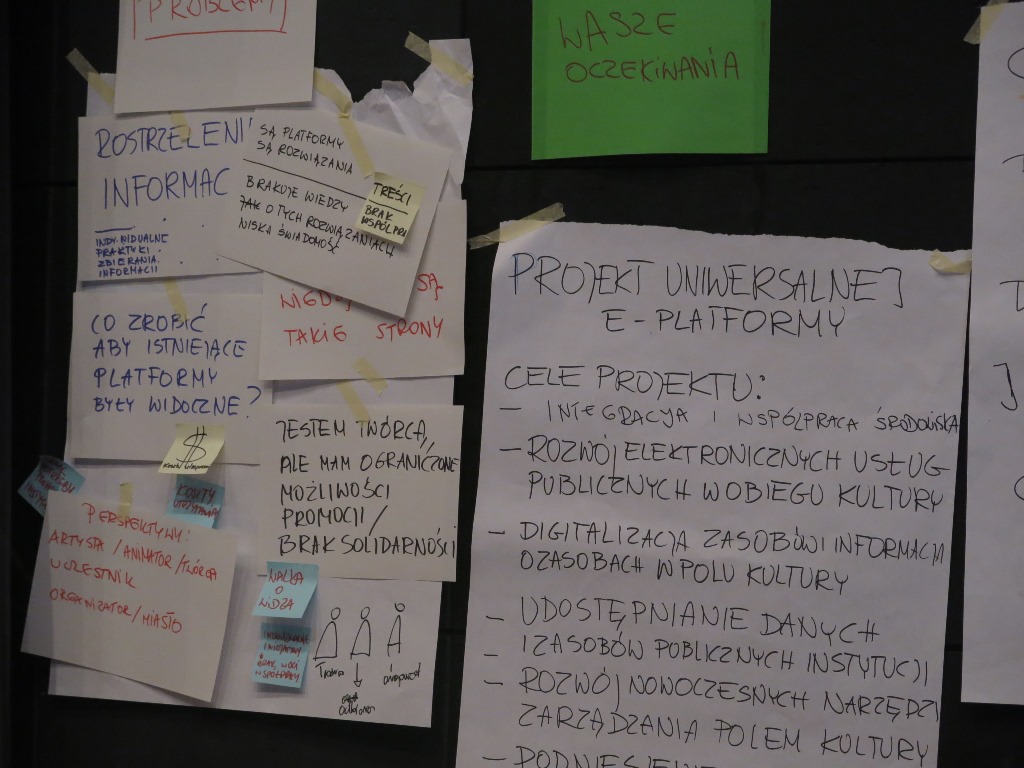 PROBLEMY
ROSTRZELENI
INFORMAC
INDYWIDUALNE
PRAKTYKI
ZBIERANIA
INFORMACJI
SĄ PLATFORMY
SĄ ROZWIĄZANIA
BRAKUJE WIEDZY
JAK O TYCH ROZWIĄZANIACH
NISKA ŚWIADOMOŚĆ
TREŚCI
BRAK
WSPÓLPRA
SĄ
TAKIE STRONY
CO ZROBIĆ
ABY ISTNIEJĄCE
PLATFORMY
BYŁY WIDOCZNE?
$
KOSZTY
UTRZYMANIA
JESTEM TWÓRCĄ,
ALE MAM OGRANICZONE
MOŻLIWOŚCI
PROMOCJI/
BRAK SOLIDARNOŚCI
PERSPEKTYWY:
ARTYSTA/ANIMATOR/TWÓRCA
UCZESTNIK
ORGANIZATOR/MIASTO
WALKA
O
WIDZA
WASZE
OCZEKIWANIA
PROJEKT UNIWERSALNEJ
E-PLATFORMY
CELE PROJEKTU:
- INTEGRACJA I WSPÓŁPRACA ŚRODOWISKA
- ROZWÓJ ELEKTRONICZNYCH USŁUG
PUBLICZNYCH W OBIEGU KULTURY
- DIGITALIZACJA ZASOBÓW I INFORMACJI
O ZASOBACH W POLU KULTURY
- UDOSTĘPNIANIE DANYCH
- I ZASOBÓW PUBLICZNYCH INSTYTUCJI
- ROZWÓJ NOWOCZESNYCH NARZĘDZI
ZARZĄDZANIA POLEM KULTURY